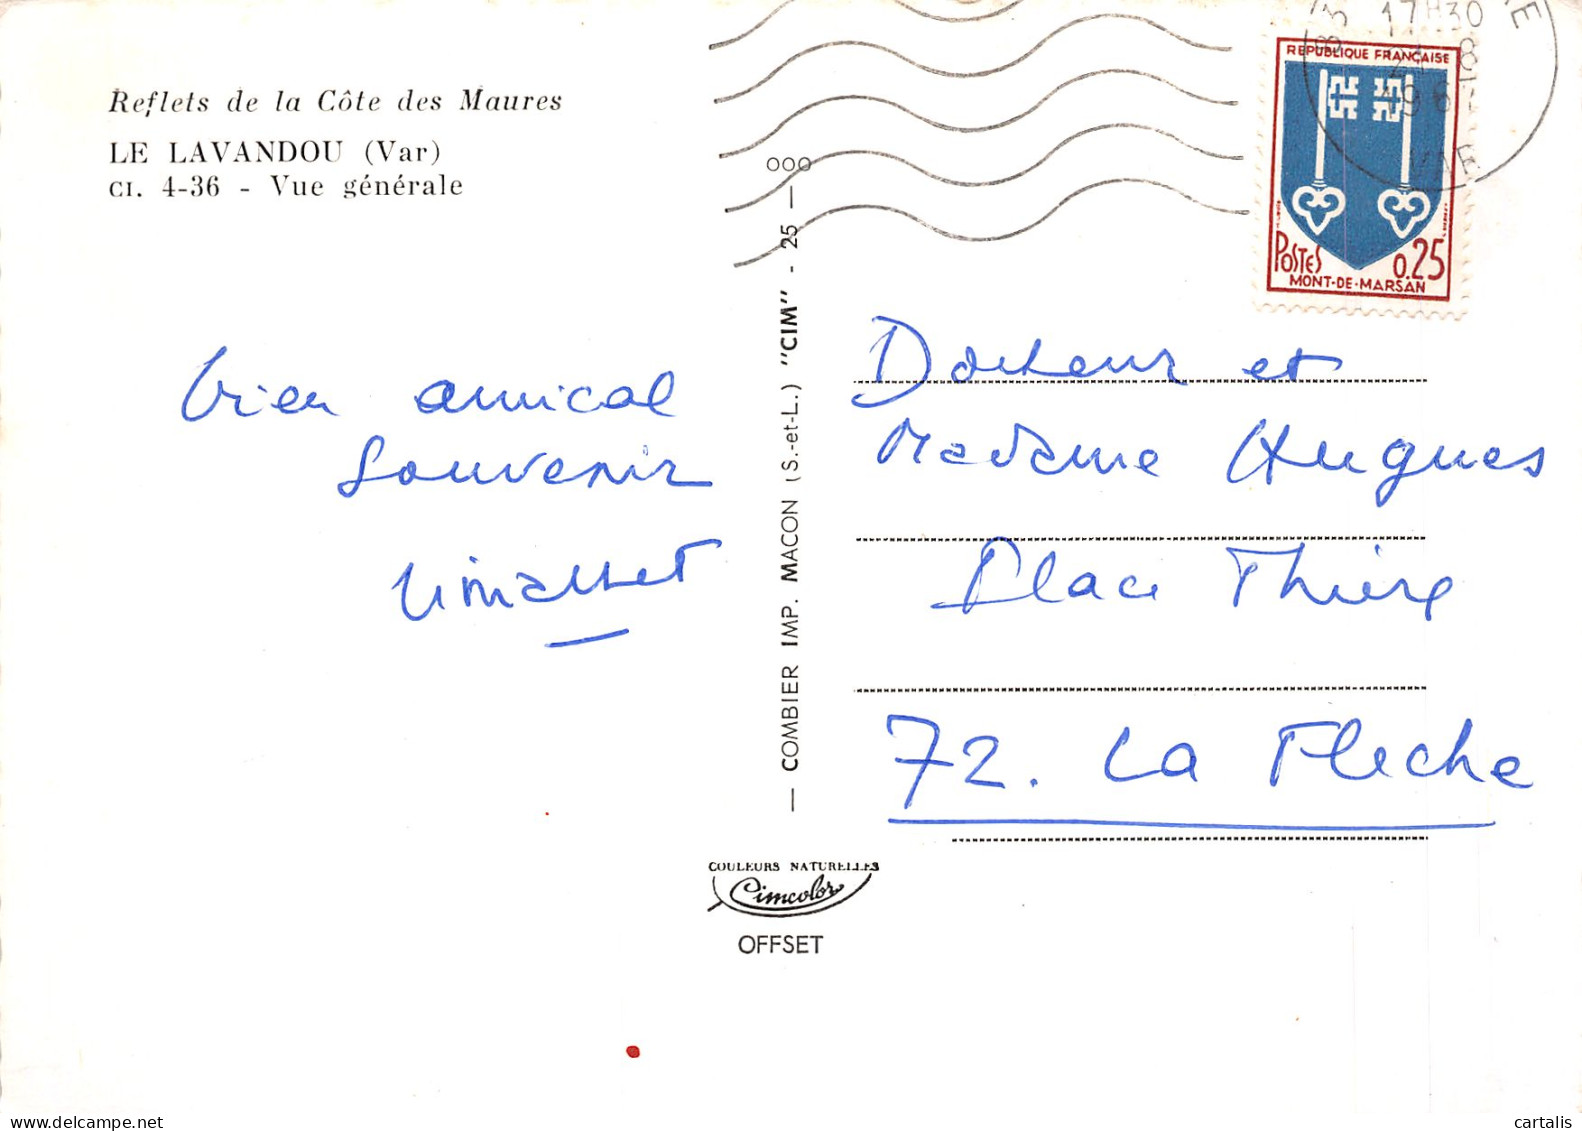 Reflets de la Côte des Maures
LE LAVANDOU (Var)
CI. 4-36 - Vue générale
bien amical
souvenir
— COMBIER IMP. MACON (S.-et-L.) "CIM" - 25 — 000
17H30
8
VAR
REPUBLIQUE FRANÇAISE
POSTES
0.25
MONT-DE-MARSAN
Docteur et
Madame Hugues
Place Thiers
72. La Fleche
COULEURS NATURELLES
Cimcolor
OFFSET
www.delcampe.net
cartalis